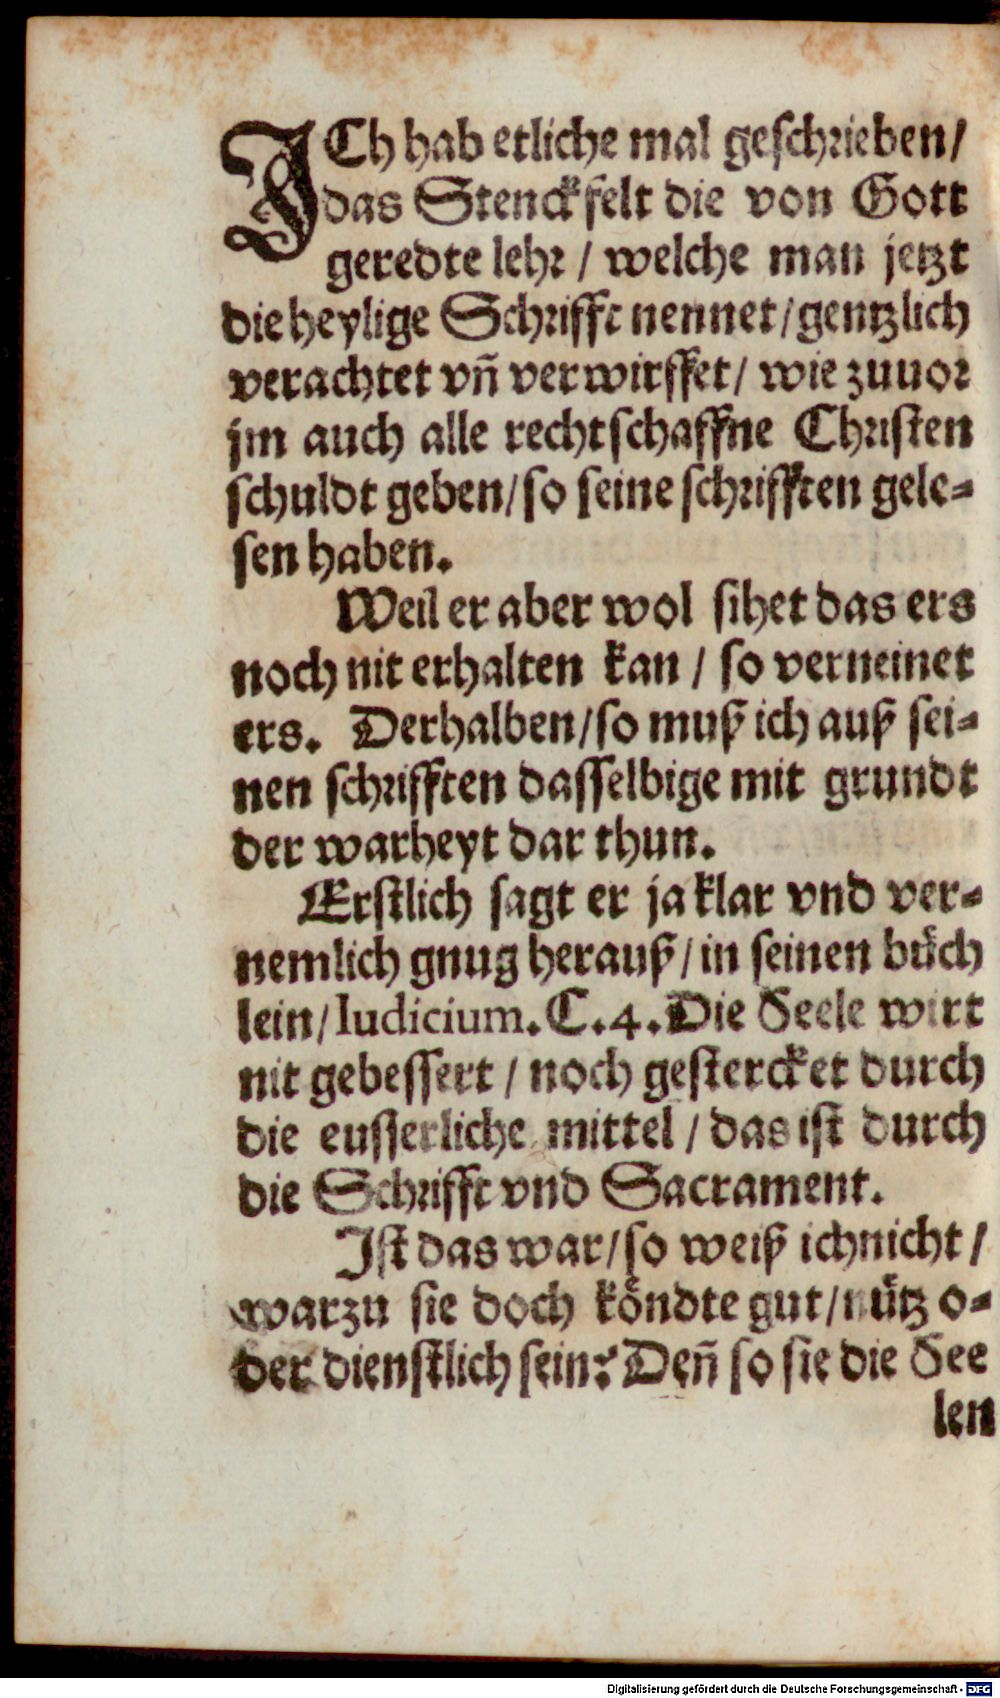 ICh hab etliche mal geschrieben/
das Stenckfelt die von Gott
geredte lehr / welche man jetzt
die heylige Schrifft nennet/gentzlich
verachtet vñ verwirffet/ wie zuuor
jm auch alle rechtschaffne Christen
schuldt geben/so seine schrifften gele-
sen haben.
Weil er aber wol sihet das ers
noch nit erhalten kan / so verneinet
ers. Derhalben/so muß ich auß sei-
nen schrifften dasselbige mit grundt
der warheyt dar thun.
Erstlich sagt er ja klar vnd ver-
nemlich gnug herauß/in seinen bůch
lein/Iudicium.C.4.Die Seele wirt
nit gebessert / noch gestercket durch
die eusserliche mittel / das ist durch
die Schrifft vnd Sacrament.
Ist das war/so weiß ich nicht /
warzu sie doch koͤndte gut/nuͤtz o-
der dienstlich sein? Deñ so sie die See
len
Digitalisierung gefördert durch die Deutsche Forschungsgemeinschaft - DFG